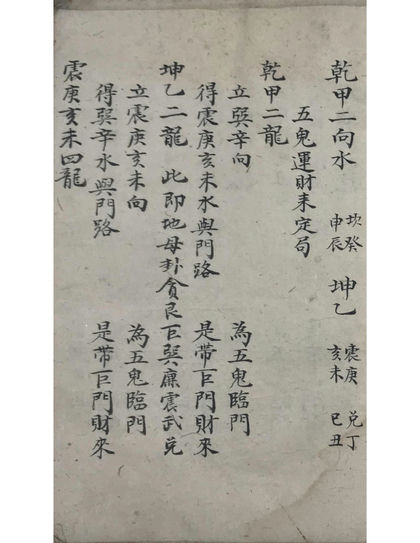 乾甲二向水 坎癸申辰 坤乙 震庚亥未 兑丁巳丑
五鬼運財来定局
乾甲二龍
立巽辛向 為五鬼臨門
得震庚亥未水與門路 是帶巨門財來
坤乙二龍 此即地母卦貪艮巨巽廉震武兑
立震庚亥未向 為五鬼臨門
得巽辛水與門路 是帶巨門財來
震庚亥未四龍